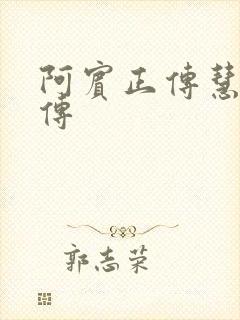 阿賓正傳慧
傳
郭志荣